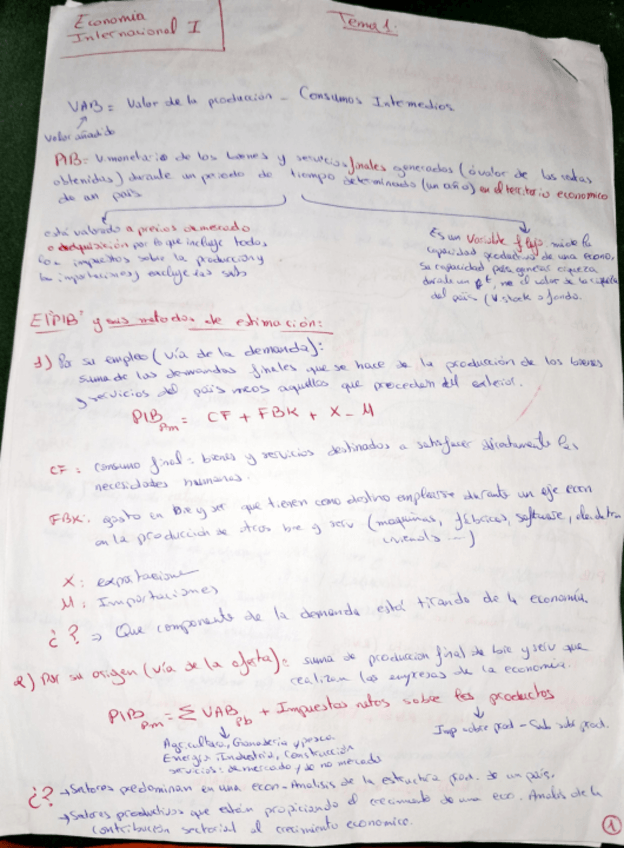 Economía
Internacional I
Tema 1.
VAB = Valor de la producción - Consumos Intermedios
Valor añadido
PIB = V.monetario de los bienes y servicios finales generados (ó valor de las rentas
obtenidas) durante un periodo de tiempo determinado (un año) en el territorio economico
de un país
está valorado a precios de mercado
o adquisición por lo que incluye todos
los impuestos sobre la producción y
la importaciones y excluye las sub
Es un Variable flujo, mide la
capacidad productiva de una econo,
su capacidad para generar riqueza
durante un el valor de la riqueza
del país (V. stock o fondo.
El "PIB" y sus metodos de estimación:
1) Por su empleo (vía de la demanda):
suma de las demandas finales que se hace de la producción de los bienes
y servicios del país menos aquellos que proceden del exterior.
PIB pm = CF + FBK + X - M
CF: consumo final = bienes y servicios destinados a satisfacer directamente las
necesidades humanas.
FBK: gasto en bie y ser que tienen como destino emplearse durante un eje econ
en la producción de otros bie y serv (maquinas, fábricas, software,
viviendas ...)
X: exportaciones
M: Importaciones
¿? → Que componente de la demanda está tirando de la economía.
2) Por su origen (vía de la oferta): suma de produccion final de bie y serv que
realizan las empresas de la economía.
PIB pm = Σ VAB pb + Impuestos netos sobre los productos
Agricultura, Ganaderia y pesca
Energía, Industria, Construcción
Servicios: de mercado y de no mercado
Imp sobre prod - Sub sobre prod.
¿? → Sectores predominan en una econ - Analisis de la estructura prod. de un país.
→ Sectores productivos que están propiciando el crecimiento de una eco. Analis de la
contribución sectorial al crecimiento economico.
1